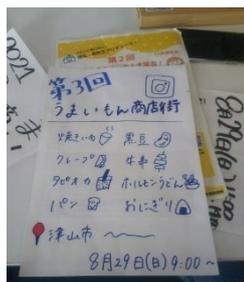 第2回
第3回
うまいもん商店街
焼きいも 黒豆
クレープ 牛串
タピオカ ホルモンうどん
パン おにぎり
津山市
8月29日(日)9:00~
2021